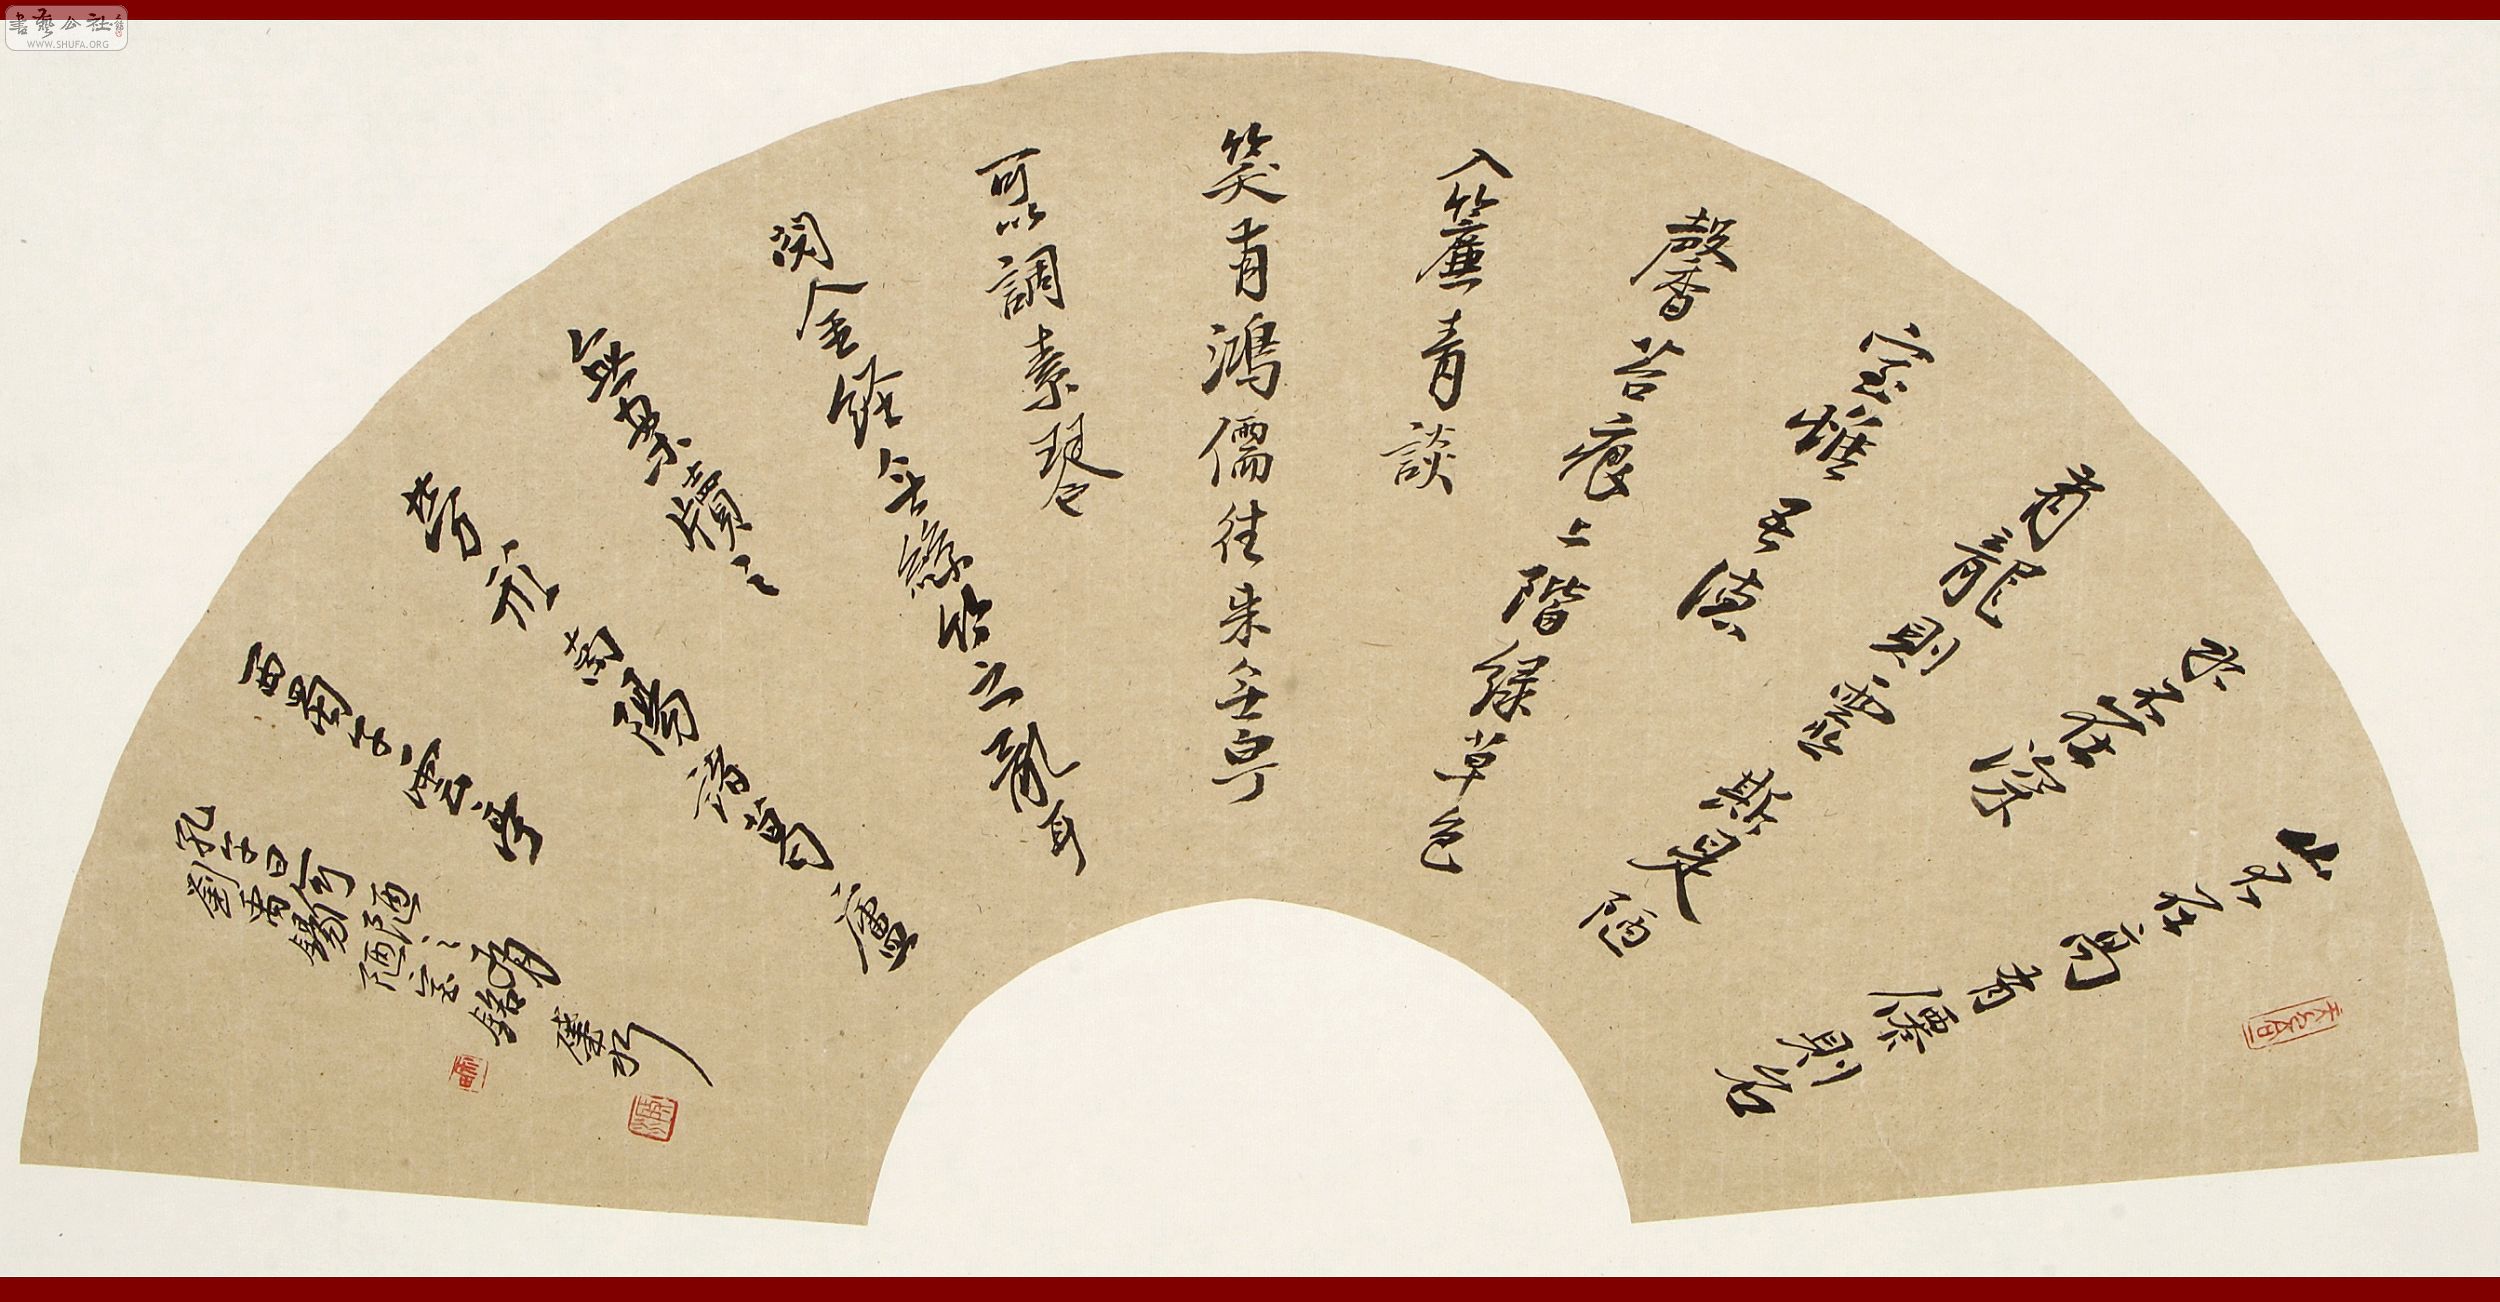 書藝公社
WWW.SHUFA.ORG
山不在高有僊則名
水不在深
有龍則靈斯是陋
室惟吾德
馨香苔痕上階緑草色
入簾青談
笑有鴻儒往来無白丁
可以調素琴
閲金經無絲竹之亂耳
無案牘之
勞形南陽諸葛廬
西蜀子雲亭
孔子曰何陋之有
劉禹錫陋室銘